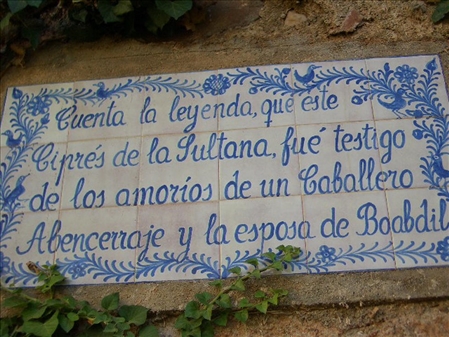 Cuenta la leyenda, que este
Ciprés de la Sultana, fué testigo
de los amoríos de un Caballero
Abencerraje y la esposa de Boabdil